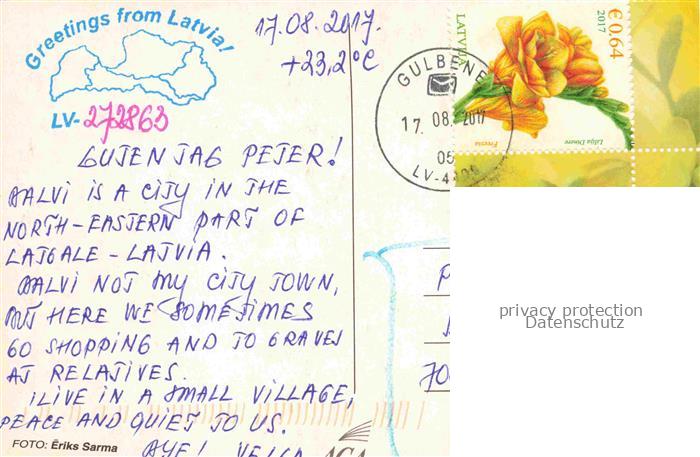 Greetings from Latvia!
LV-272863
17.08.2017.
+23,2°C
LATVIJA
€ 0.64
2017
Freesia
Līlija Dinere
GULBENE
17. 08. 2017
05
LV-44
GUTEN TAG PETER!
BALVI IS A CITY IN THE
NORTH-EASTERN PART OF
LATGALE - LATVIA.
BALVI NOT MY CITY TOWN,
BUT HERE WE SOMETIMES
GO SHOPPING AND TO GRAVES
AT RELATIVES.
I LIVE IN A SMALL VILLAGE,
PEACE AND QUIET TO US.
FOTO: Ēriks Sarma
privacy protection
Datenschutz